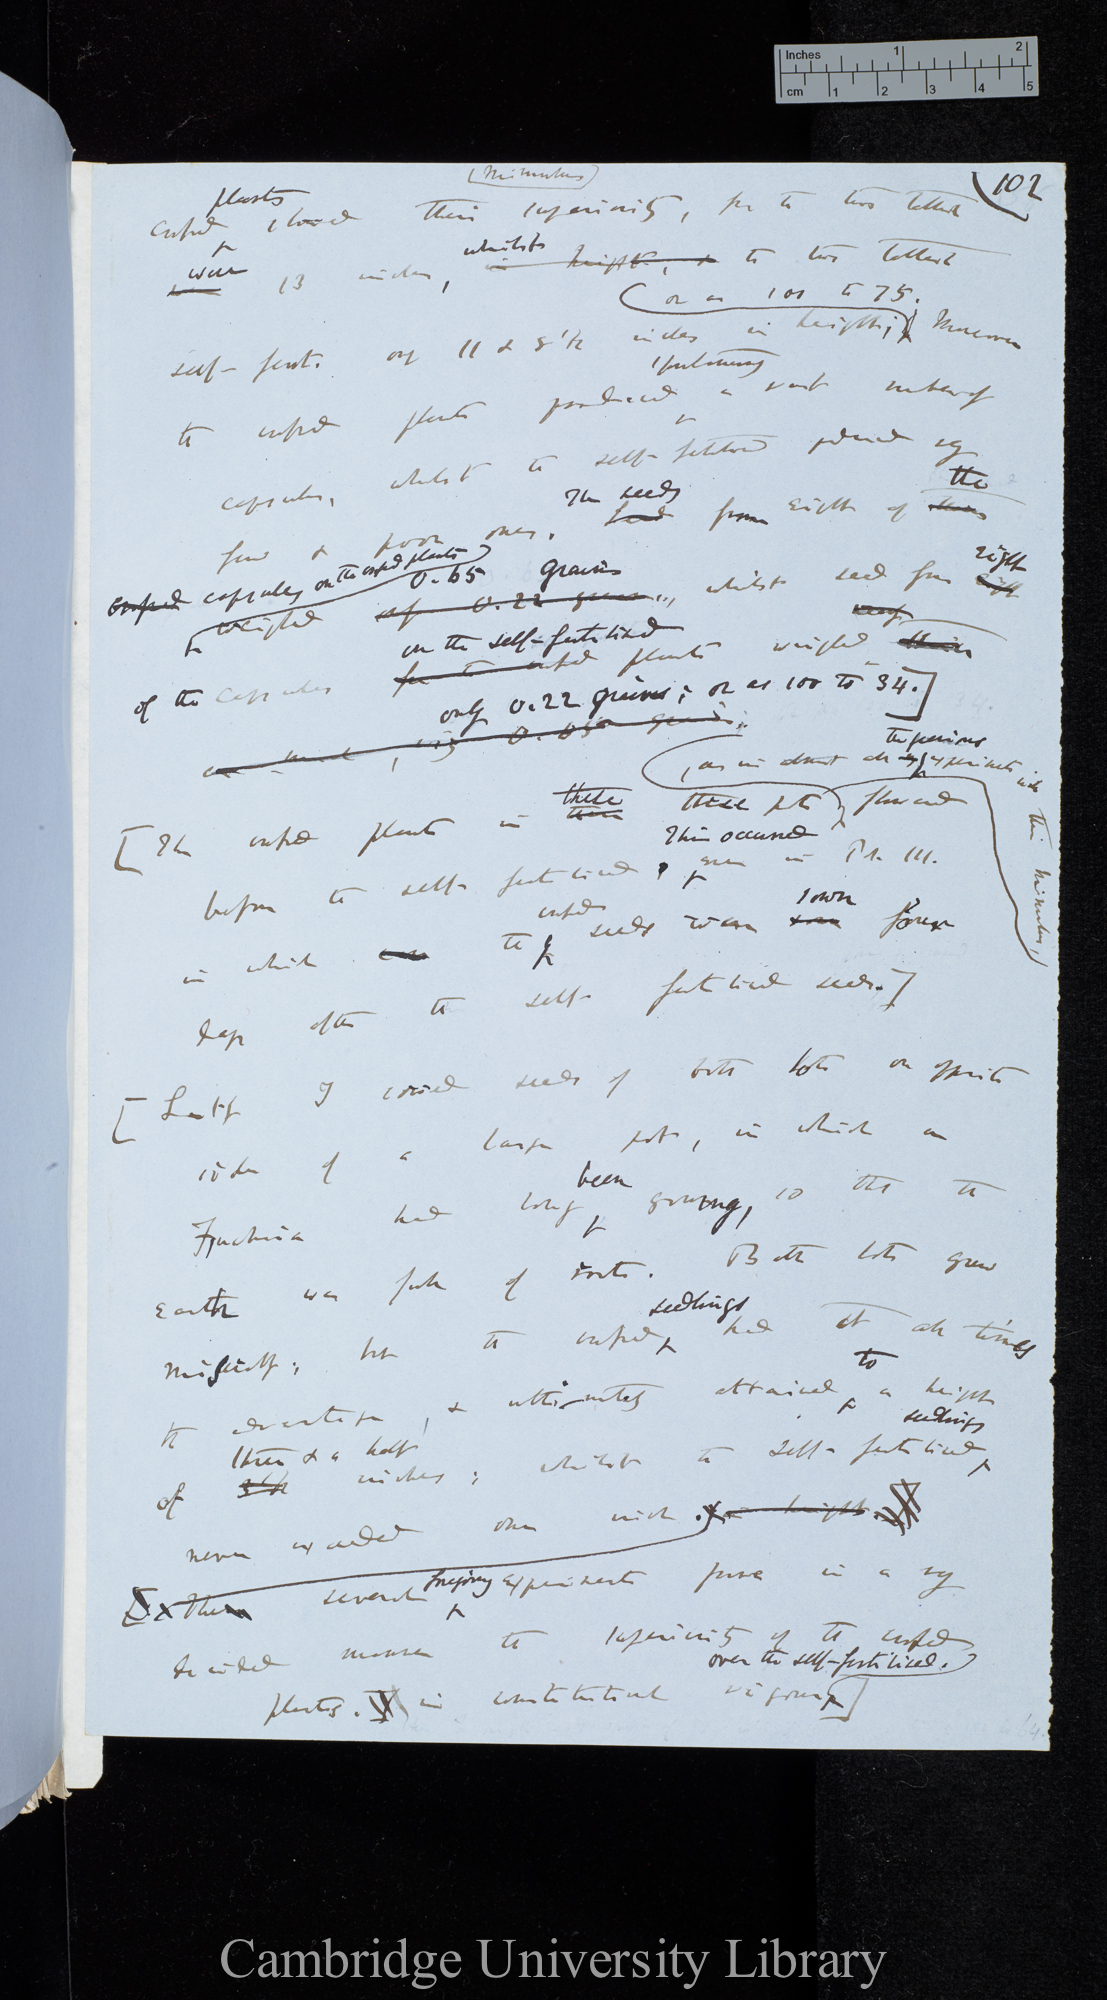 Inches 1 2
cm 1 2 3 4 5
(Mimulus)
102
plants
crossed showed their superiority, for the two tallest
were
were 13 inches, whilst in height, & the two tallest
(or as 100 to 75.
self-fert. only 11 & 8 1/2 inches in height; Moreover
spontaneously
the crossed plants produced a vast number of
capsules, whilst the self-fertilised produced very
few & poor ones. The seeds from eight of the
crossed capsules on the crossed plants
weighed 0.65 grains, whilst seed from eight
0.22 grains
of the capsules on the self-fertilised plants weighed
for the crossed
only 0.22 grains; or as 100 to 34.]
0.65 grains
(, as in almost all the previous experiments with this Mimulus,)
[The crossed plants in these these pots flowered
before the self-fertilised. This occurred even in Pot III.
in which the crossed seeds were sown four
days after the self-fertilised seeds.]
[Lastly I sowed seeds of both lots on opposite
sides of a large pot, in which a
Fuchsia had long been growing, so that the
earth was full of roots. Both lots grew
miserably; but the crossed seedlings had at all times
the advantage, & ultimately attained to a height
of three & a half inches; whilst the self-fertilised seedlings
3 1/2
never exceeded one inch. in height.
The several foregoing experiments prove in a very
decided manner the superiority of the crossed
over the self-fertilised.
plants. in constitutional vigour]
Cambridge University Library